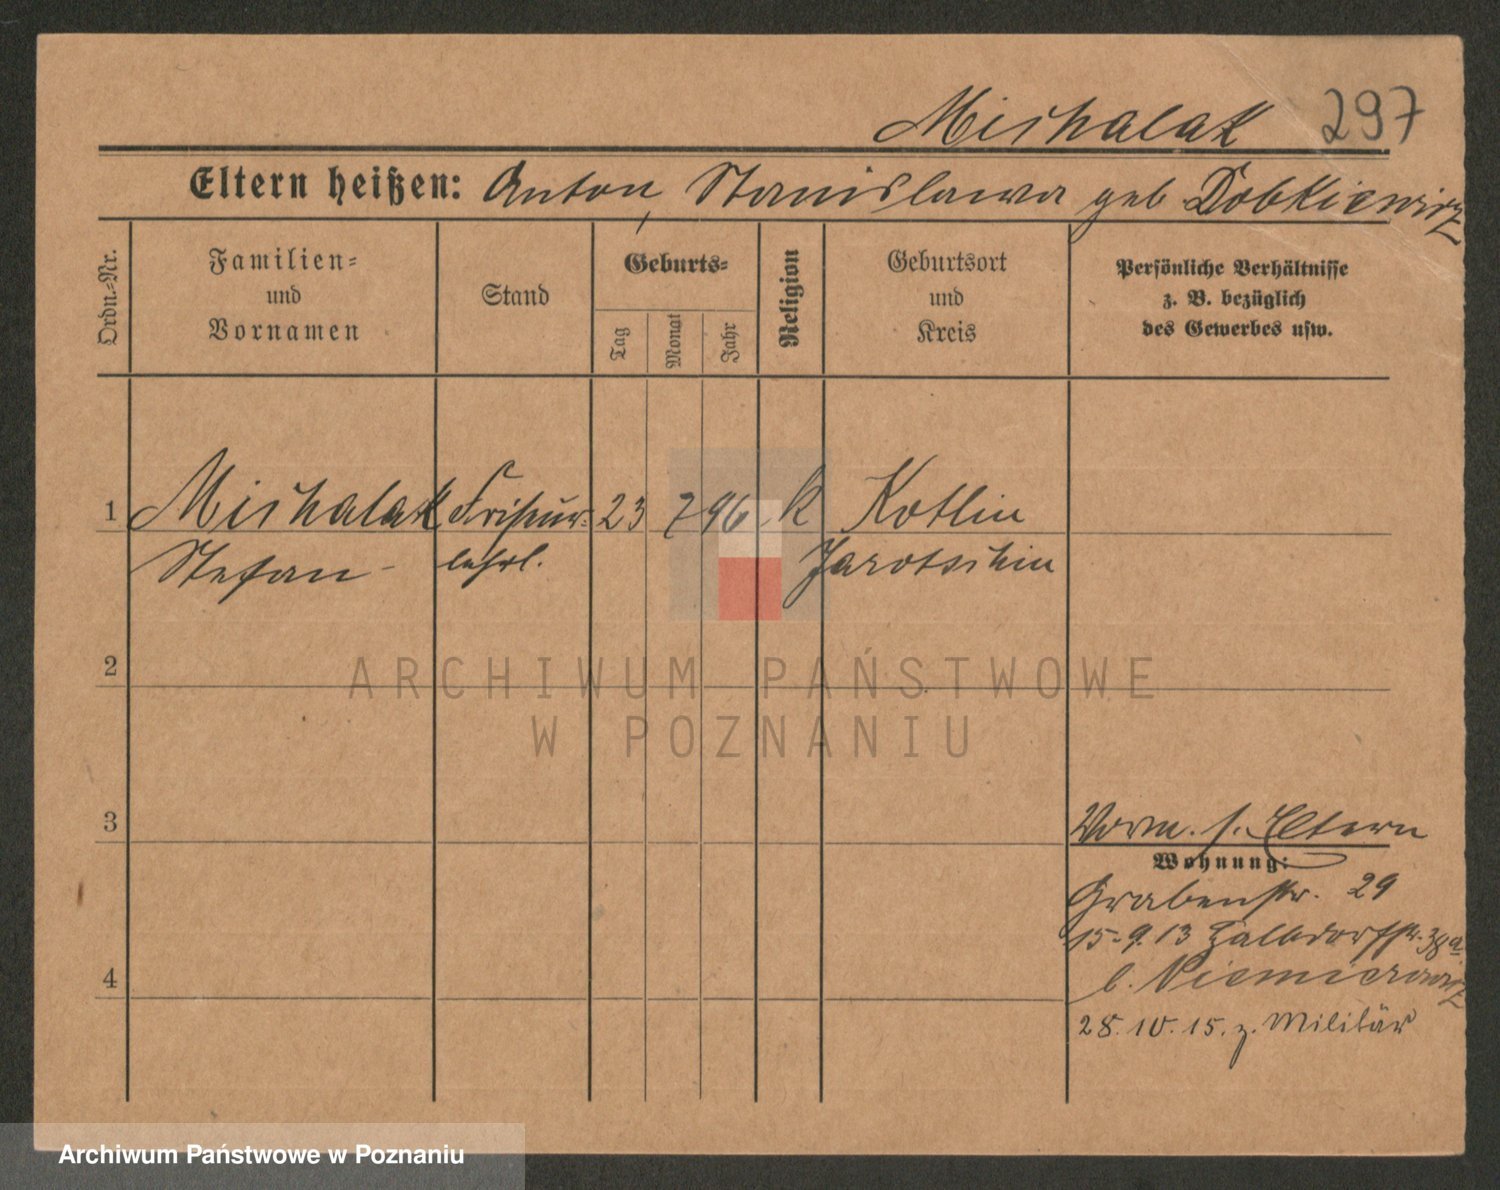 Michalak 297
Eltern heißen: Anton, Stanislawa geb. Dobkiewicz
Ordn.-Nr.
Familien-
und
Vornamen
Stand
Geburts-
Tag
Monat
Jahr
Religion
Geburtsort
und
Kreis
Persönliche Verhältnisse
z. B. bezüglich
des Gewerbes usw.
1 Michalak Friseur- 23 7 96 k Kotlin
Stefan lehrl. Jarotschin
2
3
Vorm. s. Eltern
Wohnung:
Grabenstr. 29
15.9.13 Halbdorfstr. 38a
b. Niemierowicz
4
28.10.15. z. Militär
ARCHIWUM PAŃSTWOWE
W POZNANIU
Archiwum Państwowe w Poznaniu